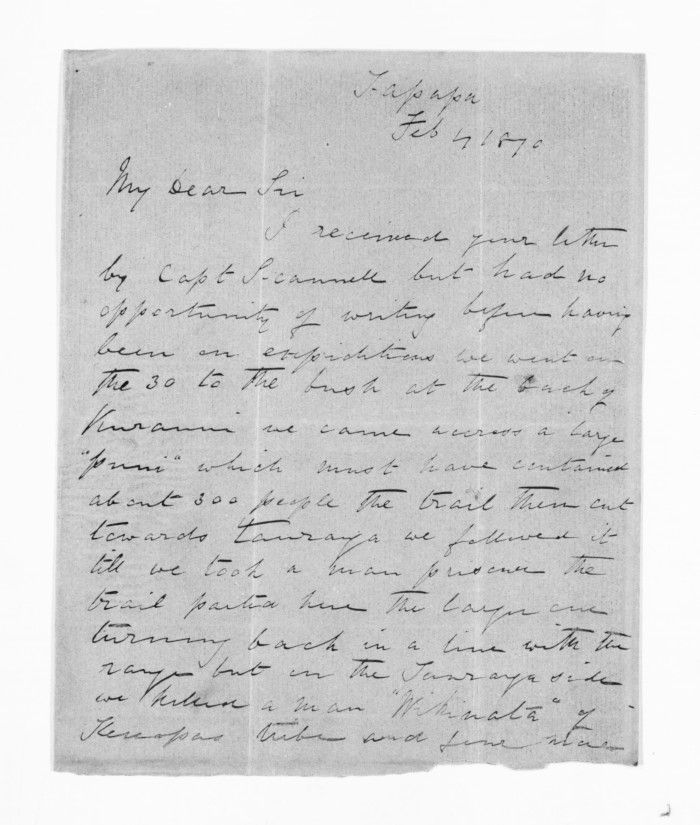 Tapapa
Feb 4 1870
My Dear Sir
I received your letter
by Capt Scannell but had no
opportunity of writing before having
been on expeditions we went on
the 30 to the bush at the back of
Kuranui we came accross a large
"puni" which must have contained
about 300 people the trail then cut
towards Tauranga we followed it
till we took a man prisoner the
trail parted here the larger one
turning back in a line with the
range but on the Tauranga side
we killed a man "Wikinata" of
tribe and some more